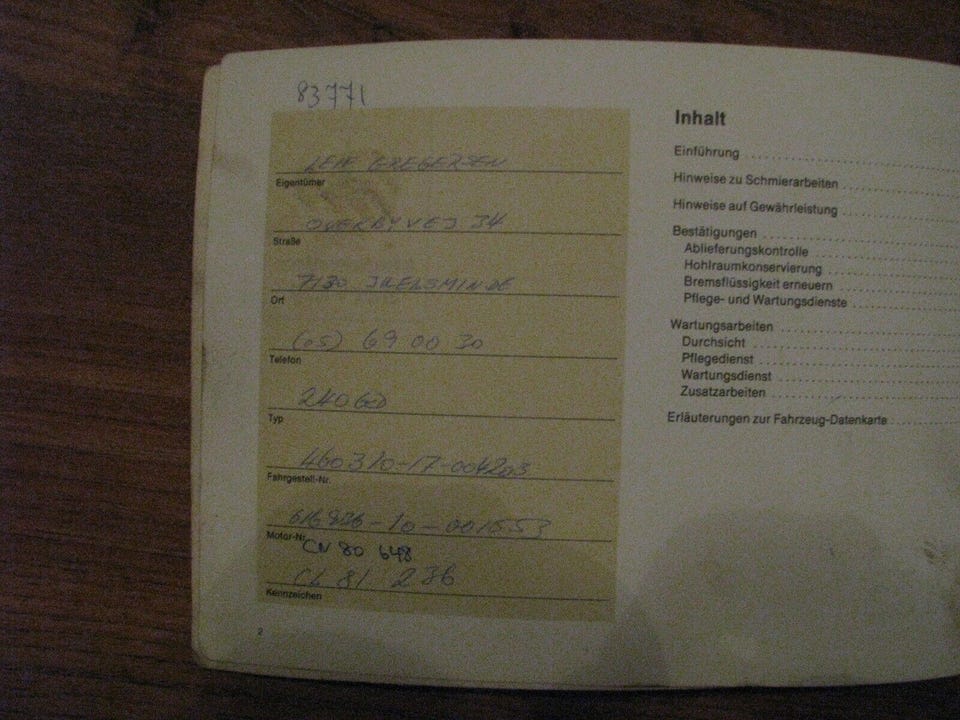 83771
LEIF GREGERSEN
Eigentümer
OVERBYVEJ 34
Straße
7130 JUELSMINDE
Ort
(05) 69 00 30
Telefon
240 GD
Typ
460310-17-004203
Fahrgestell-Nr.
616926-10-001553
Motor-Nr.
CV 80 648
CL 81 236
Kennzeichen
2
Inhalt
Einführung
Hinweise zu Schmierarbeiten
Hinweise auf Gewährleistung
Bestätigungen
Ablieferungskontrolle
Hohlraumkonservierung
Bremsflüssigkeit erneuern
Pflege- und Wartungsdienste
Wartungsarbeiten
Durchsicht
Pflegedienst
Wartungsdienst
Zusatzarbeiten
Erläuterungen zur Fahrzeug-Datenkarte